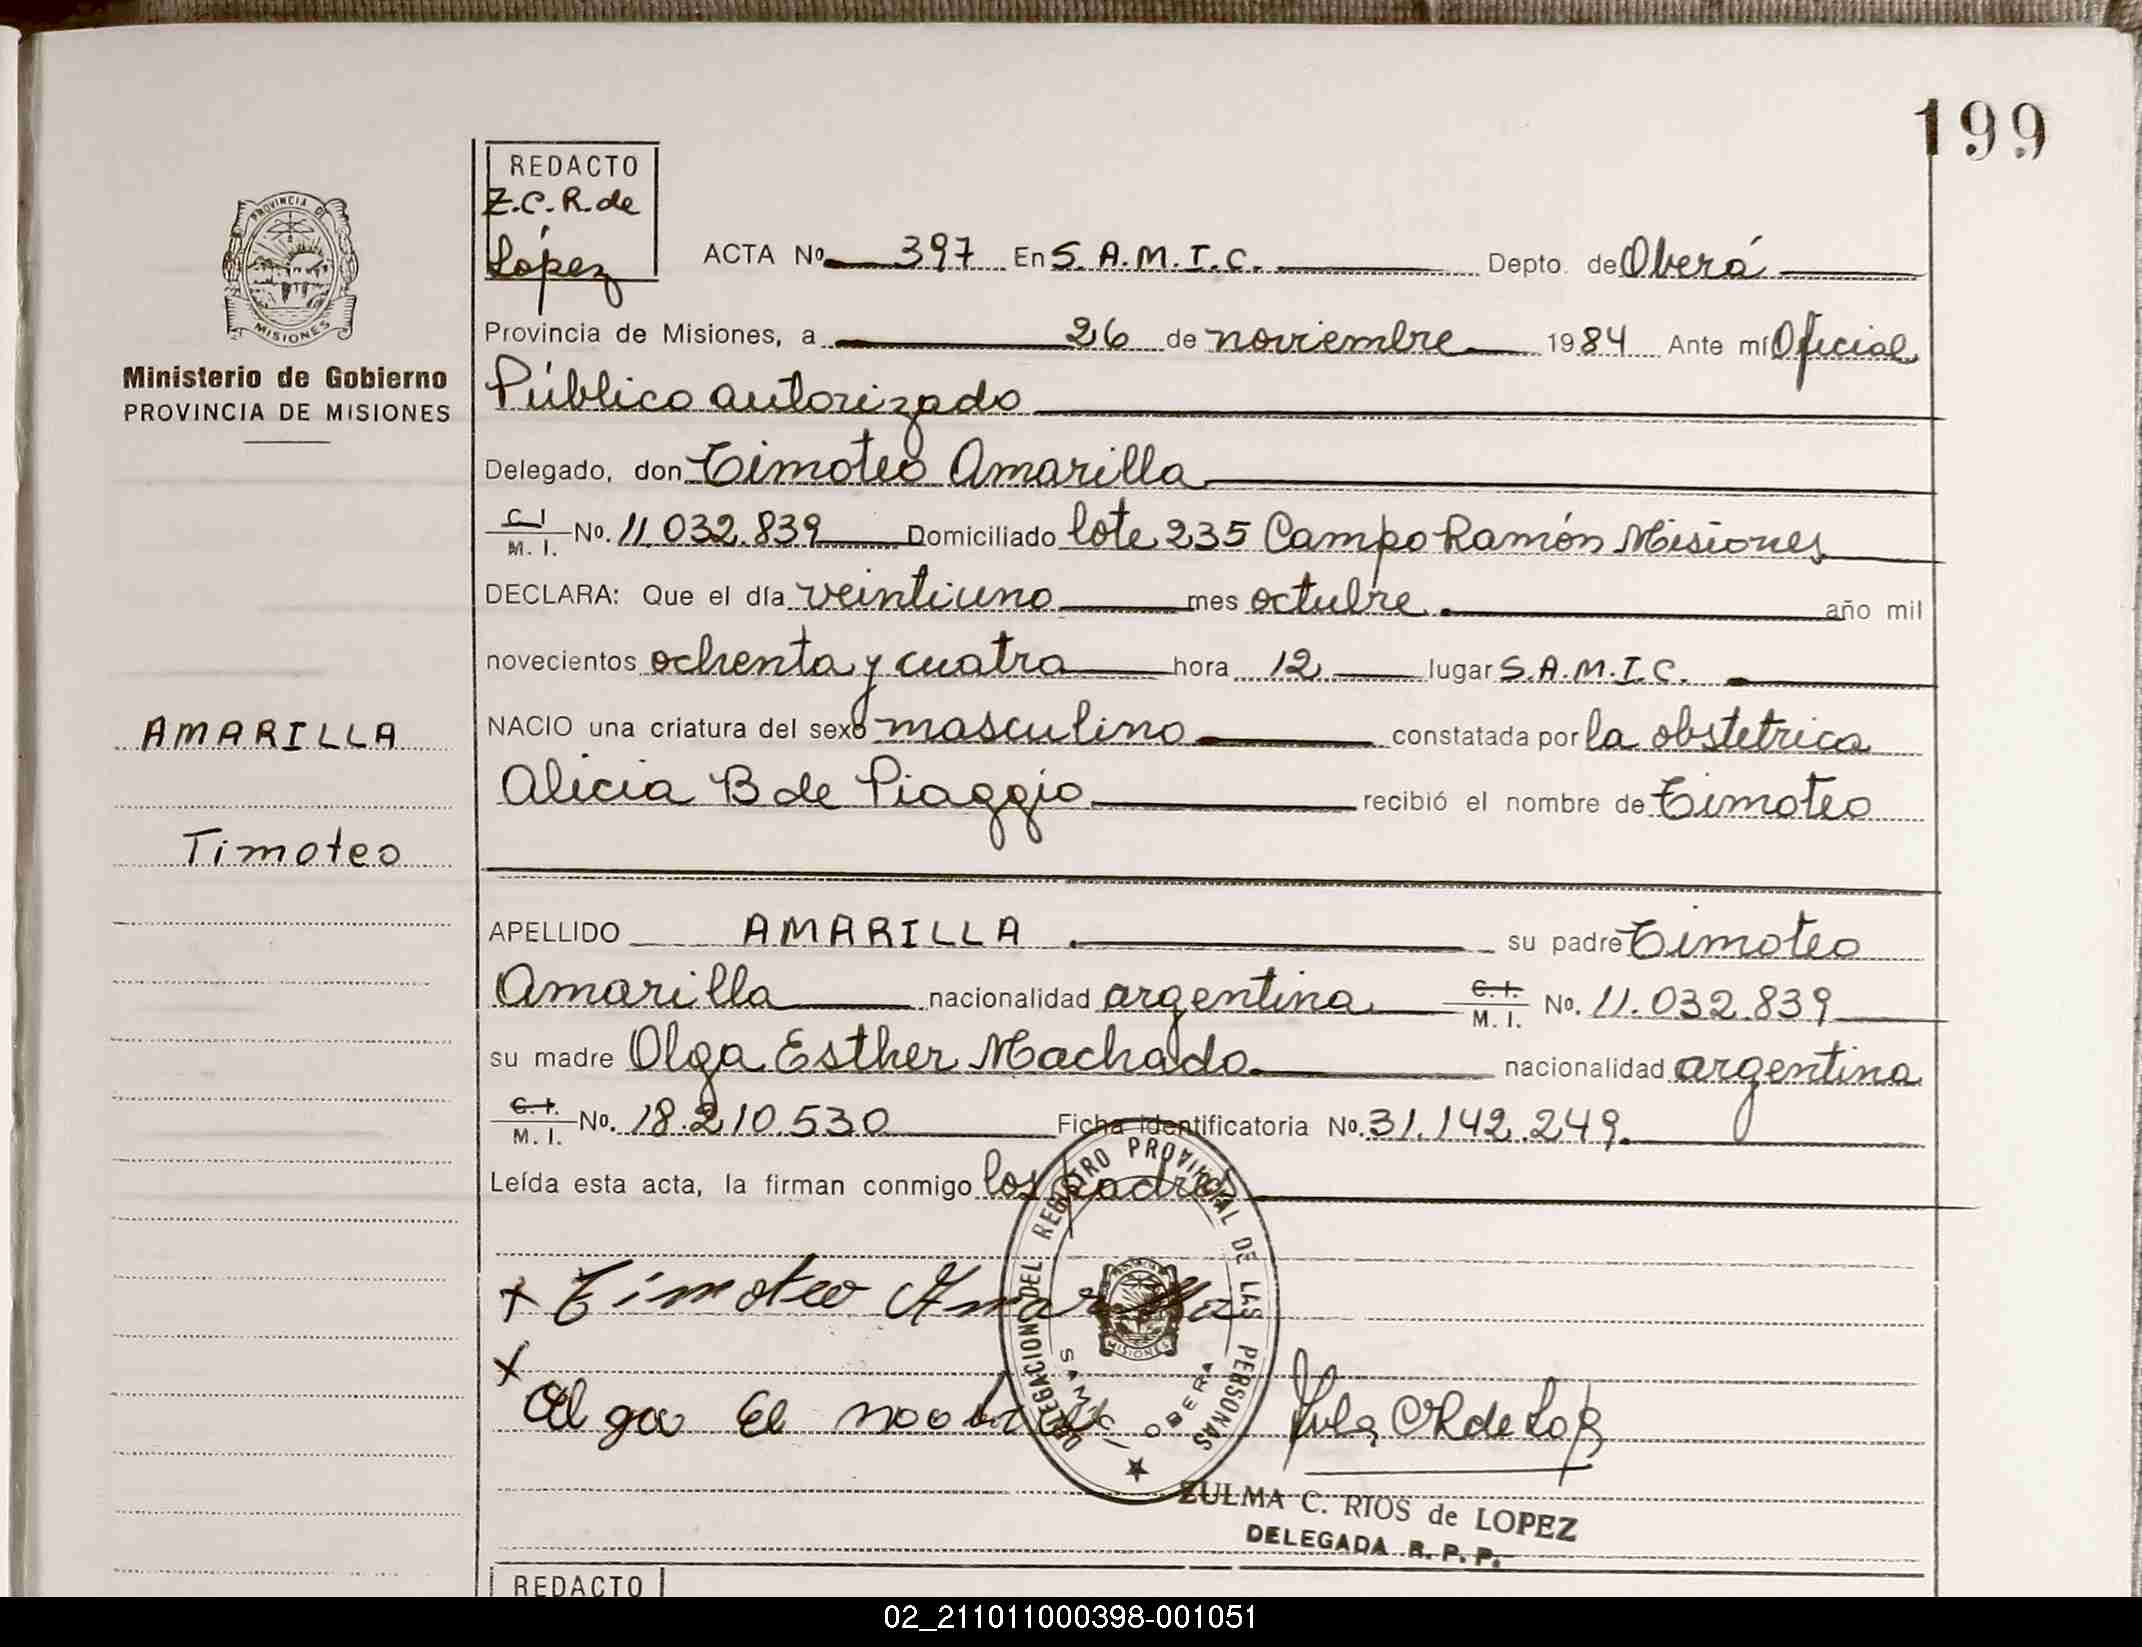 199
REDACTO
Z.C.R. de
López
ACTA Nº 397 En S.A.M.I.C. Depto. de Oberá
PROVINCIA DE
MISIONES
Provincia de Misiones, a 26 de noviembre 1984 Ante mí Oficial
Ministerio de Gobierno
PROVINCIA DE MISIONES
Público autorizado
Delegado, don Timoteo Amarilla
C.I. M.I. No. 11.032.839 Domiciliado lote 235 Campo Ramón Misiones
DECLARA: Que el día veintiuno mes octubre año mil
novecientos ochenta y cuatro hora 12 lugar S.A.M.I.C.
AMARILLA
NACIO una criatura del sexo masculino constatada por la obstetrica
Alicia B de Piaggio recibió el nombre de Timoteo
Timoteo
APELLIDO AMARILLA su padre Timoteo
Amarilla nacionalidad argentina C.I. M.I. No. 11.032.839
su madre Olga Esther Machado nacionalidad argentina
C.I. M.I. No. 18.210.530 Ficha identificatoria No. 31.142.249
Leída esta acta, la firman conmigo los padres
DELEGACION DEL REGISTRO PROVINCIAL DE LAS PERSONAS
S.A.M.I.C. OBERA
MISIONES
x Timoteo Amarilla
x
Olga
ZULMA C. RIOS de LOPEZ
DELEGADA R. P. P.
REDACTO
02_211011000398-001051